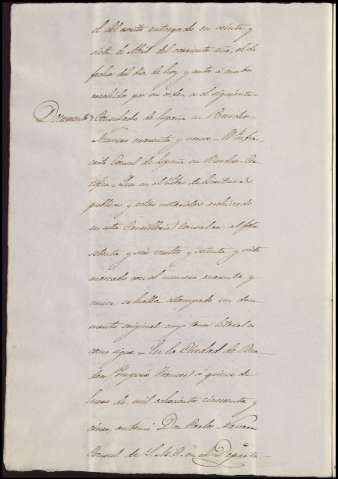 el del veinte entregado en veinte y
siete de Abril del corriente año, el de
fecha del dia de hoy y entre á ambos
por su orden es el siguiente
Documento Consulado de España en Burdeos
Numero cuarenta y nueve. El Infra
Consul de España en Burdeos Cer
tifica: Que en el libro de Escrituras
publicas y actos notariales
en esta Cancilleria Consular al folio
setenta y seis vuelto y setenta y siete
marcado con el numero cuarenta y
nueve se halla estampado un docu
mento original cuyo tenor literal es
como sigue = En la Ciudad de Bur
deos (Imperio Frances) á quince de
de mil ochocientos cincuenta y
ante mi Don Carlos
Consul de S.M.C. en el Departa-